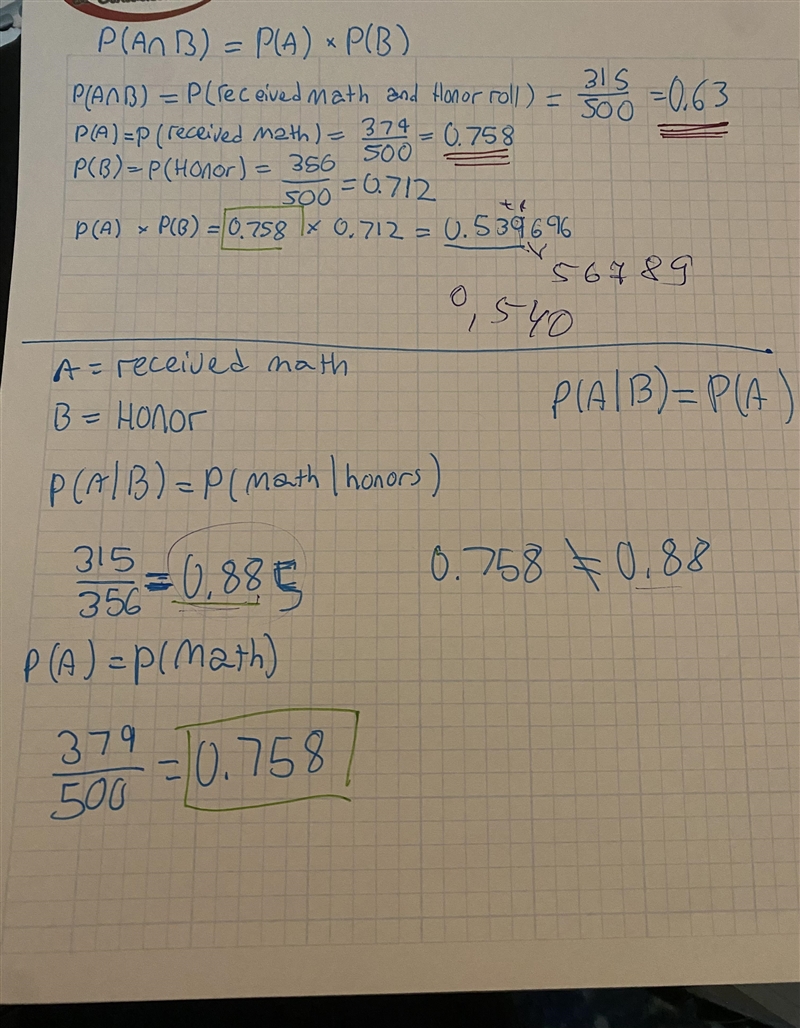 P(A∩B) = P(A) × P(B)
P(A∩B) = P(received math and Honor roll) = 315/500 = 0.63
P(A) = P(received math) = 379/500 = 0.758
P(B) = P(Honor) = 356/500 = 0.712
P(A) × P(B) = 0.758 × 0.712 = 0.539696
56789
0,540
A = received math
B = Honor
P(A|B) = P(A)
P(A|B) = P(math|honors)
315/356 = 0.885
0.758 ≠ 0.88
P(A) = P(Math)
379/500 = 0.758